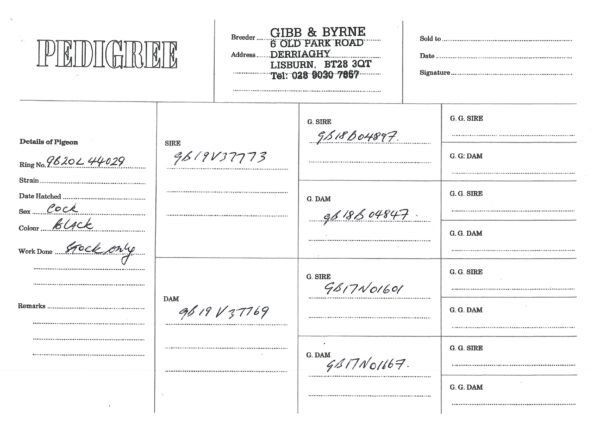 PEDIGREE
Breeder GIBB & BYRNE
6 OLD PARK ROAD
Address DERRIAGHY
LISBURN. BT28 3QT
Tel: 028 9030 7867
Sold to
Date
Signature
Details of Pigeon
Ring No. GB20L44029
Strain
Date Hatched
Sex Cock
Colour BLACK
Work Done Stock only
Remarks
SIRE
GB19V37773
DAM
GB19V37769
G. SIRE
GB18B04897.
G. DAM
GB18B04847.
G. SIRE
GB17N01601
G. DAM
GB17N01167.
G. G. SIRE
G. G. DAM
G. G. SIRE
G. G. DAM
G. G. SIRE
G. G. DAM
G. G. SIRE
G. G. DAM